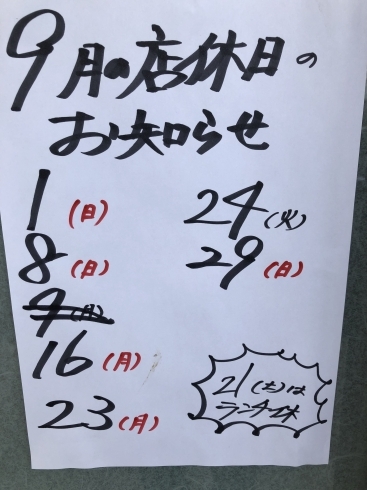 9月の店休日の
お知らせ
1(日)
8(日)
16(月)
23(月)
24(火)
29(日)
21(土)は
ランチ休